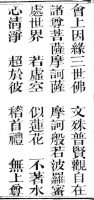 會上因緣三世佛 文殊普賢觀自在
諸尊菩薩摩訶薩 摩訶般若波羅蜜
處世界 若虛空 似蓮花 不著水
心清淨 超於彼 稽首禮 無上尊